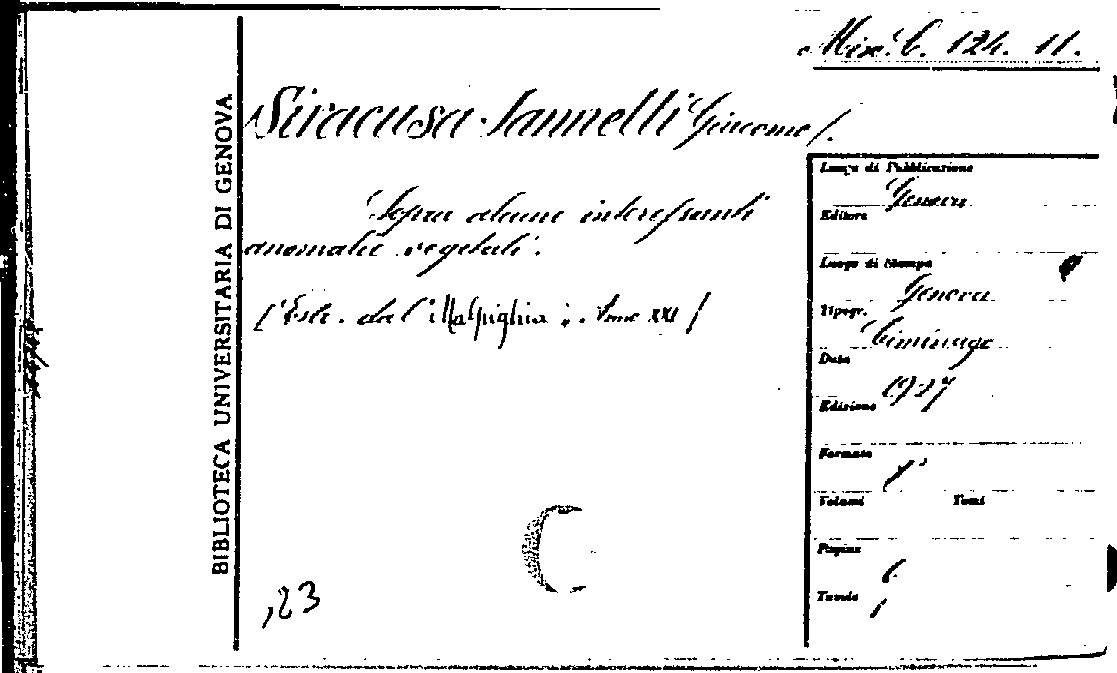 Misc. C. 124. 11.
BIBLIOTECA UNIVERSITARIA DI GENOVA
Siracusa-Iannelli Giacomo/.
Sopra alcune interessanti
anomalie vegetali.
(Estr. dal Malpighia: Anno XXI)
Luogo di Pubblicazione
Genova
Editore
Luogo di Stampa
Genova
Tipogr.
Ciminago
Data
1927
Edizione
Formato
8°
Volumi Tomi
Pagine
6
Tavole
1
,23